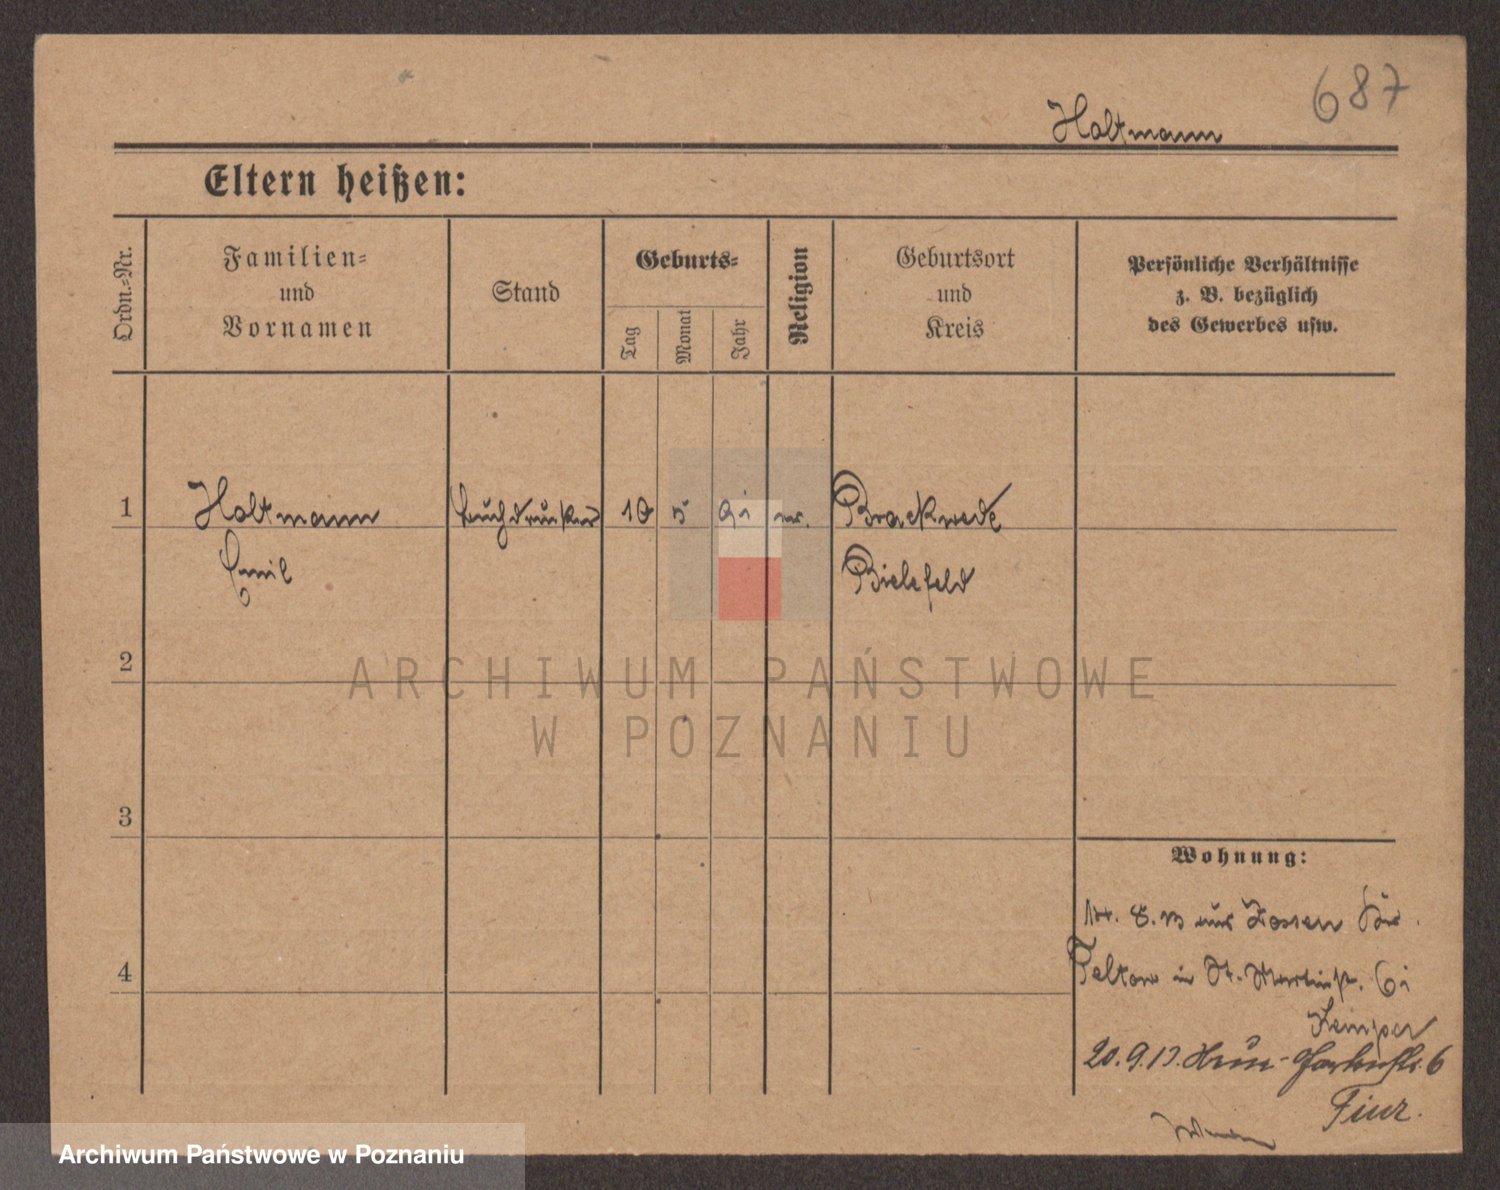 687
Holtmann
Eltern heißen:
Ordn.-Nr.
Familien-
und
Vornamen
Stand
Geburts-
Tag
Monat
Jahr
Religion
Geburtsort
und
Kreis
Persönliche Verhältnisse
z. B. bezüglich
des Gewerbes usw.
1 Holtmann Buchdrucker 10 5 91 ev. Brackwede
Emil Bielefeld
2
ARCHIWUM PAŃSTWOWE
W POZNANIU
3
Wohnung:
8. 13 aus Zossen Kr.
4
Teltow in St. Martinstr. 61
Kemper
20. 9. 13. 6
Archiwum Państwowe w Poznaniu